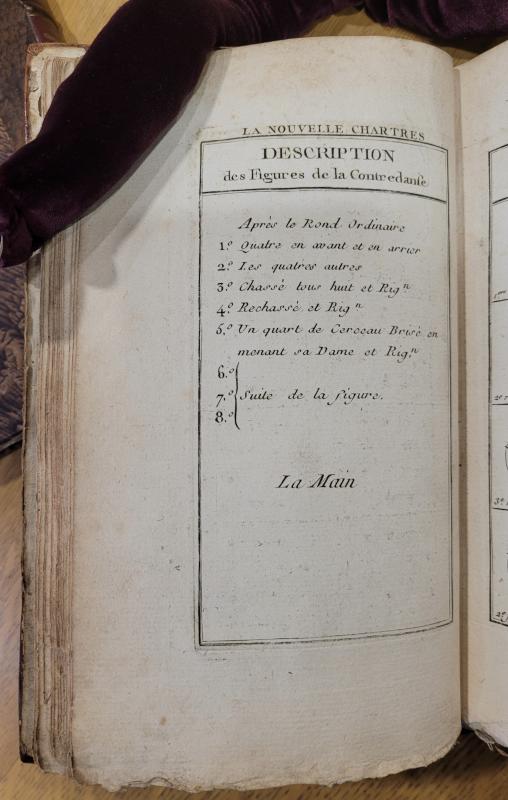 LA NOUVELLE CHARTRES
DESCRIPTION
des Figures de la Contredanſe
Après le Rond Ordinaire
1.º Quatre en avant et en arrier
2.º Les quatres autres
3.º Chassé tous huit et Rigⁿ
4.º Rechassé et Rigⁿ
5.º Un quart de Cerceau Brisé en
menant sa Dame et Rig.ⁿ
6.º
7.º Suite de la figure.
8.º
La Main